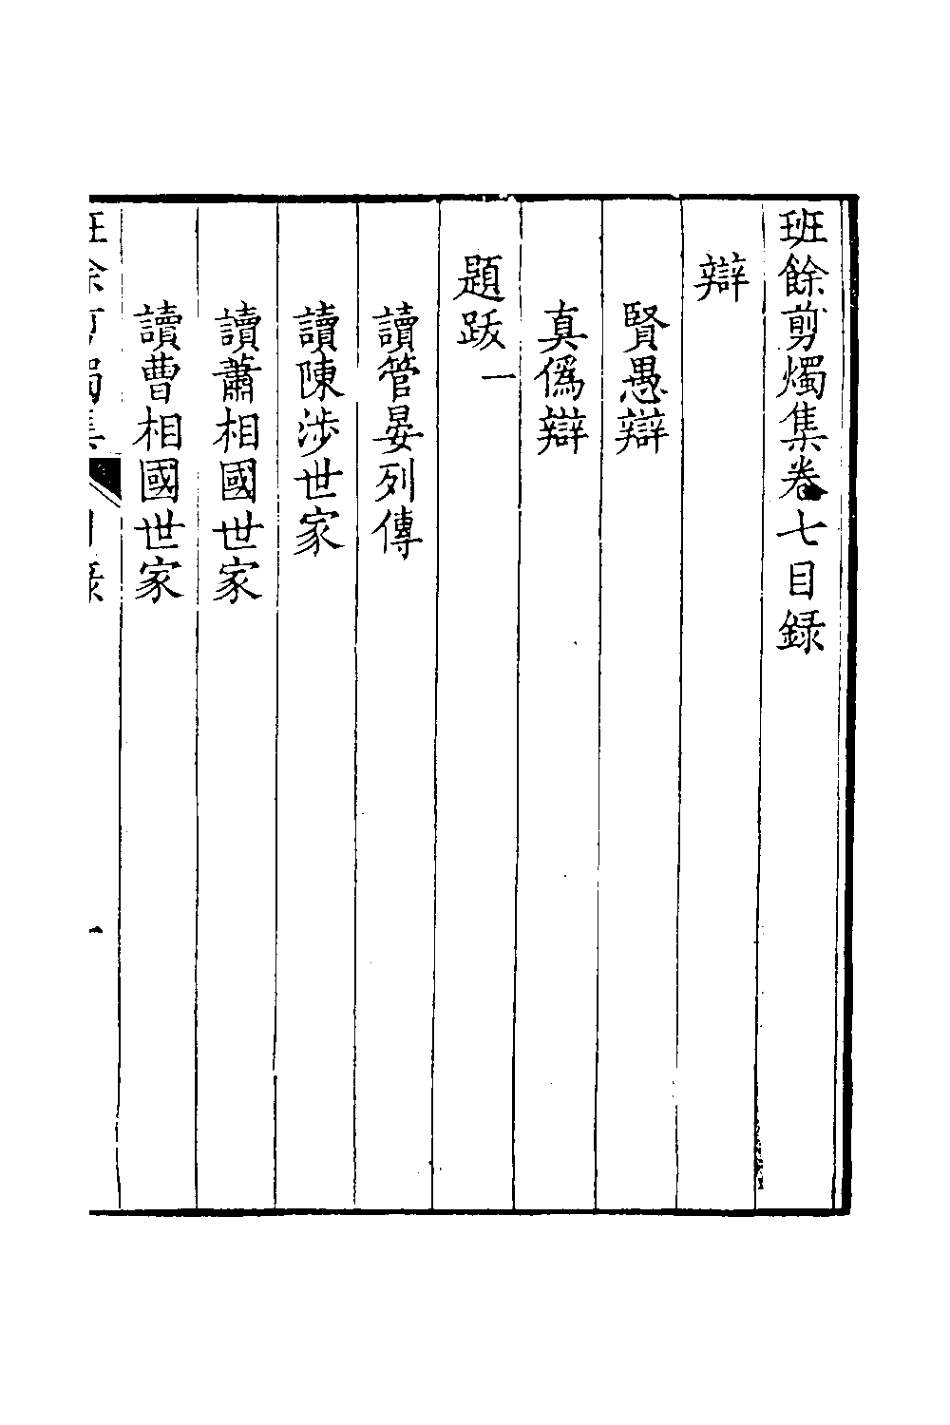 班餘剪燭集卷七目録
辯
賢愚辯
真僞辯
題跋一
讀管晏列傳
讀陳涉世家
讀蕭相國世家
讀曹相國世家